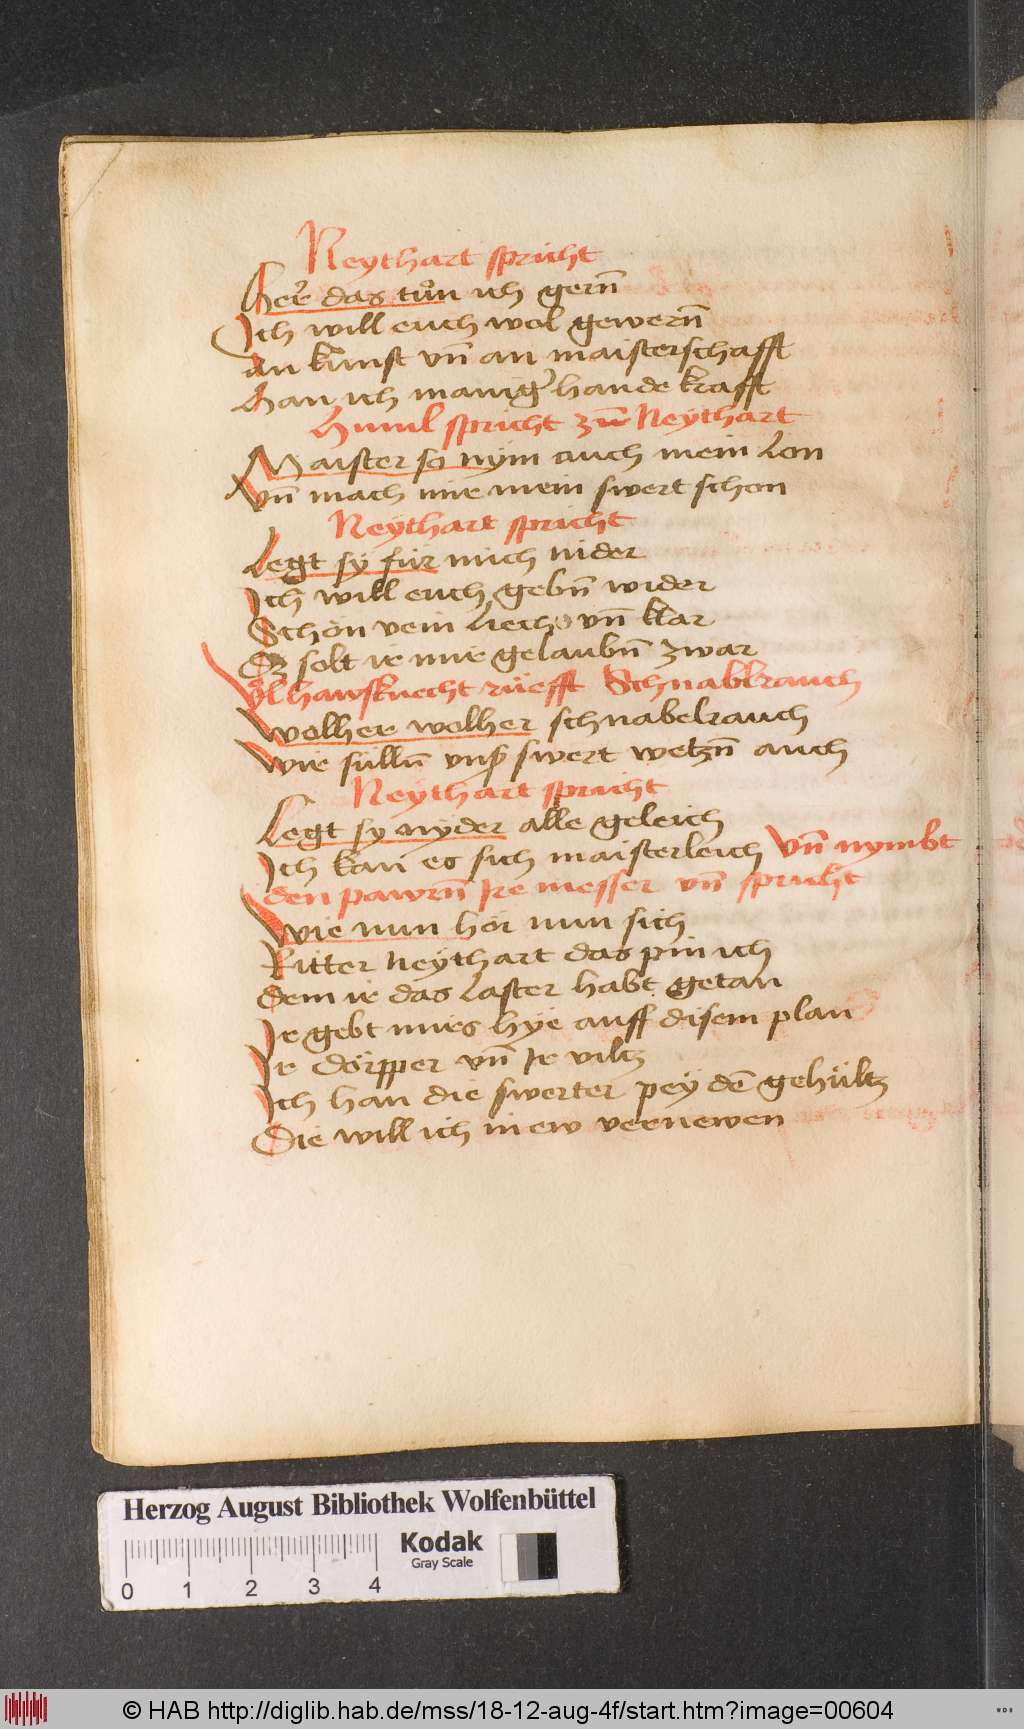 Neythart spricht
Her̄ das tůn ich gern̄
Ich will euch wol gewern̄
An kunst vn̄ an maisterschafft
Han ich manig' hande krafft
spricht zu Neythart
Maister so nÿm auch mein Lon
Vn̄ mach mir mein swert schon
Neÿthart spricht
Legt sÿ für mich nider
Ich will euch gebn̄ wider
Schön vein Liecht vn̄ klar
Dz solt ir mir gelaubn̄ zwar
hawsknecht rüefft Schnablrauch
Wolher wolher schnabelrauch
Wir sülln̄ vns' swert wetzn̄ auch
Neÿthart spricht
Legt sy nÿder alle geleich
Ich kan es sich maisterleich Vn̄ nymbt
den pawrn̄ Ire messer vn̄ spricht
Wie nun hör nun sich
Ritter neÿthart das pin ich
Dem ir das Laster habt getan
Ir gebt mirs hÿe auff disem plan
Ir dörpper vn̄ Ir viltz
Ich han die swerter peÿ dē gehültz
Die will ich new vernewen
Herzog August Bibliothek Wolfenbüttel
Kodak
Gray Scale
0 1 2 3 4
© HAB http://diglib.hab.de/mss/18-12-aug-4f/start.htm?image=00604